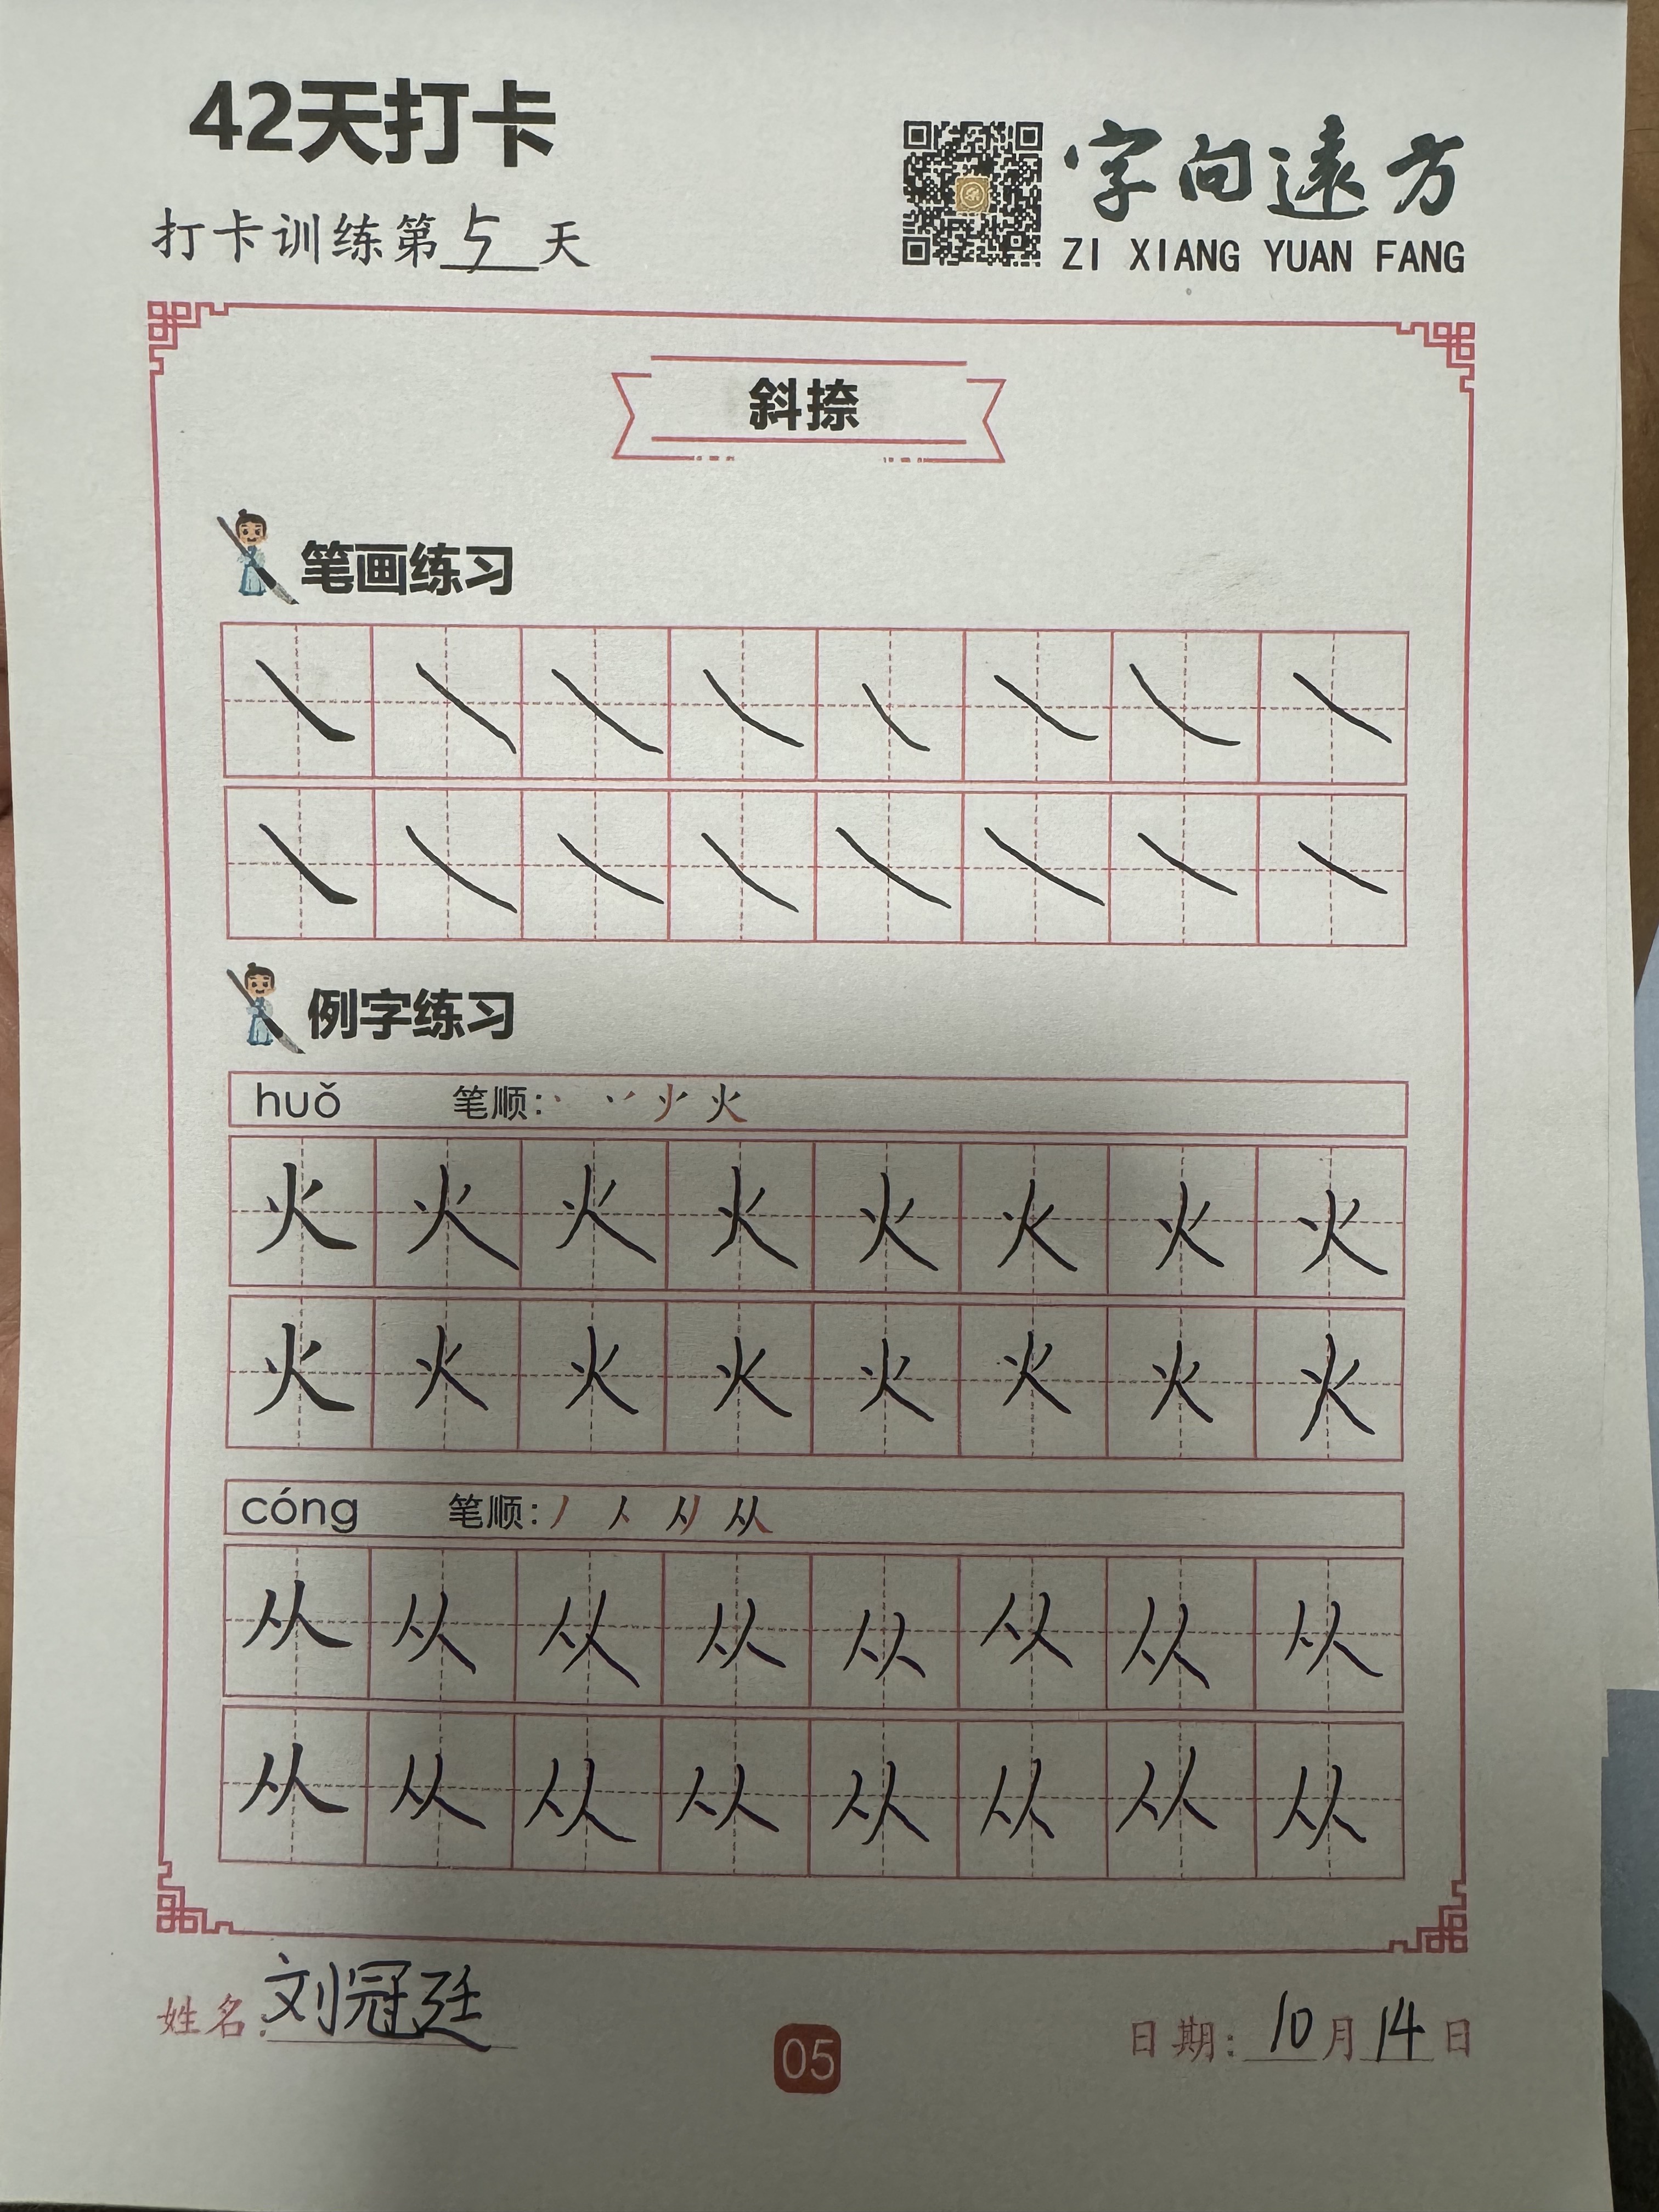 42天打卡
字向遠方
ZI XIANG YUAN FANG
打卡训练第5天
斜捺
笔画练习
例字练习
huǒ 笔顺:
火火火火火火火火
火火火火火火火火
cóng 笔顺:
从从从从从从从从
从从从从从从从从
姓名:刘冠廷
05
日期:10月14日